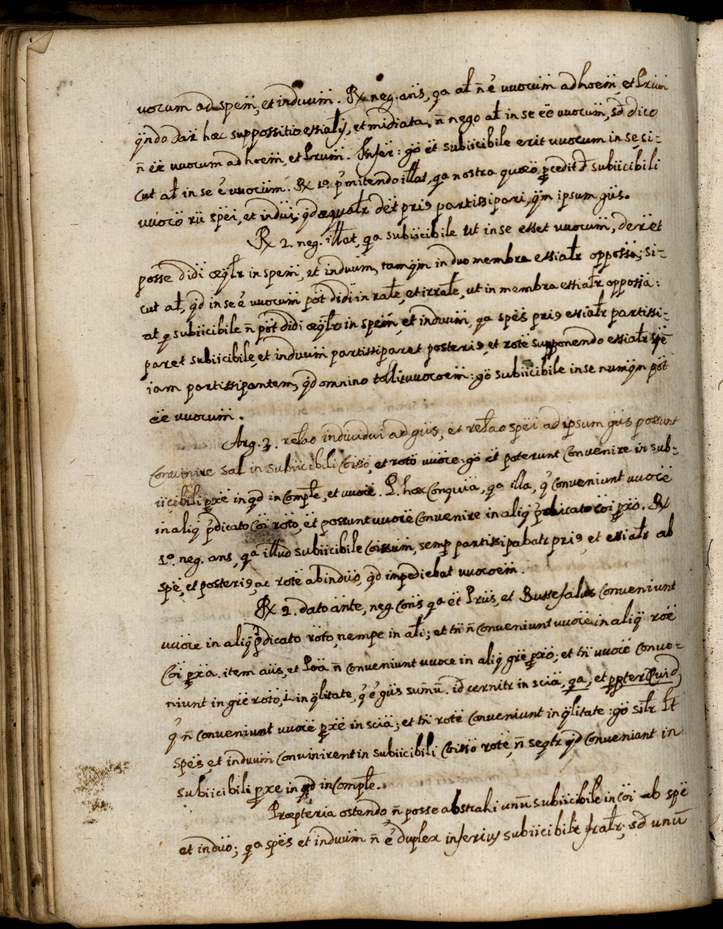 vocum ad spem, et induum. Rx neg. ans, qa al n e uuocum ad hoem, et Prum
qndo dar hec suppossitio essialis, et midiata, n nego al in se ee uuocum, sd dico
n ee uuocum ad hoem, et Prum. Infer: go et subiicibile erit uuocum in se, si-
cut al in se e uuocum. Rx 1o pmitendo illat, qa nostra quaeo pcedit d subiicibili
uuoco rii spei, et indui, qd aequalr det prio partissipari, qm ipsum gus.
Rx 2. neg. illat, qa subiicibile ut in se esset uuocum, deret
posse didi aeqlr in spem, et induum, tamqm in duo membra essialr opposita; si-
cut al, qd in se e uuocum pot didi in rale, et irrale, ut in membra essialr opposita:
at q subiicibile n pot didi aeqlr in spem, et induum, qa spes prio essialr partissi-
paret subiicibile, et induum partissiparet posterio, et rote supponendo essialr spe-
iam partissipantem, qd omnino tollit uuocoem: go subiicibile in se numqm pot
ee uuocum.
Arg. 3. relao individui ad gus, et relao spei ad ipsum gus possunt
convinire sal in subiicibili coiss, et roto uuoce: go et poterunt convenire in sub-
iicibili pxe in qd incomple, et uuoce. P. haec conquia, qa illa, q conveniunt uuoce
in aliq pdicato coi roto, et possunt uuoce convenire in aliq pdicato coi pxo. Rx
1o neg. ans, qa illud subiicibile coissum, semp partissipabatr prio, et essialr ab
spe, et posterio, ac rote ab induo, qd impediebat uuocoem.
Rx 2. dato ante, neg. cons qa et Prus, et Bussefalus conveniunt
uuoce in aliq pdicato roto, nempe in ali; et tn n conveniunt uuoce in aliq roe
coi pxa. item aiis, et Loa n conveniunt uuoce in aliq gre pxo; et tn uuoce conve-
niunt in gre roto, in qlitate, q e gus sumu. id cernitr in scia, qa, et ppter quid
q n conveniunt uuoce pxe in scia; et tn rote conveniunt in qlitate: go silr lt
spes, et induum convinirent in subiicibili coisso rote, n seqtr qd conveniant in
subiicibili pxe in qd incomple.
Praepteria ostendo n posse abstrahi unu subiicibile in coi ab spe
et induo; qa spes et induum n e duplex inferius subiicibile fralr; sd unu